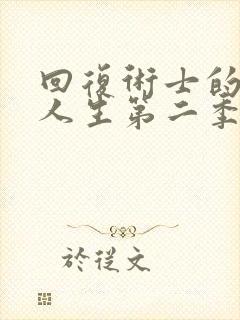 回復術士的
人生第二季
於從文